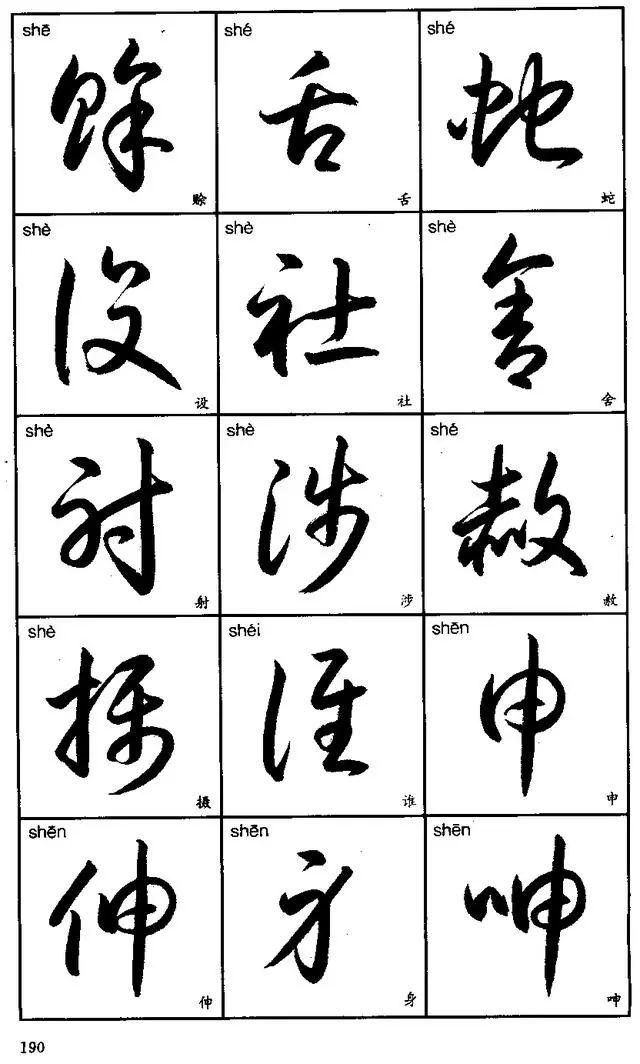 shē shé shé
赊 舌 蛇
赊 舌 蛇
shè shè shè
设 社 舍
设 社 舍
shè shè shé
射 涉 赦
射 涉 赦
shè shéi shēn
摄 谁 申
摄 谁 申
shēn shēn shēn
伸 身 呻
伸 身 呻
190